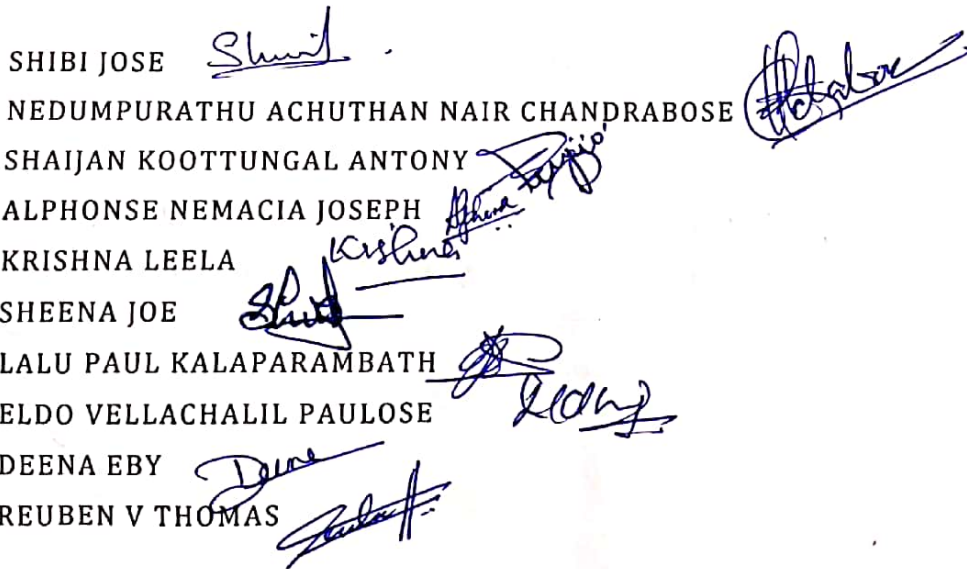 SHIBI JOSE
NEDUMPURATHU ACHUTHAN NAIR CHANDRABOSE
SHAIJAN KOOTTUNGAL ANTONY
ALPHONSE NEMACIA JOSEPH
KRISHNA LEELA Krishna
SHEENA JOE
LALU PAUL KALAPARAMBATH
ELDO VELLACHALIL PAULOSE
DEENA EBY
REUBEN V THOMAS